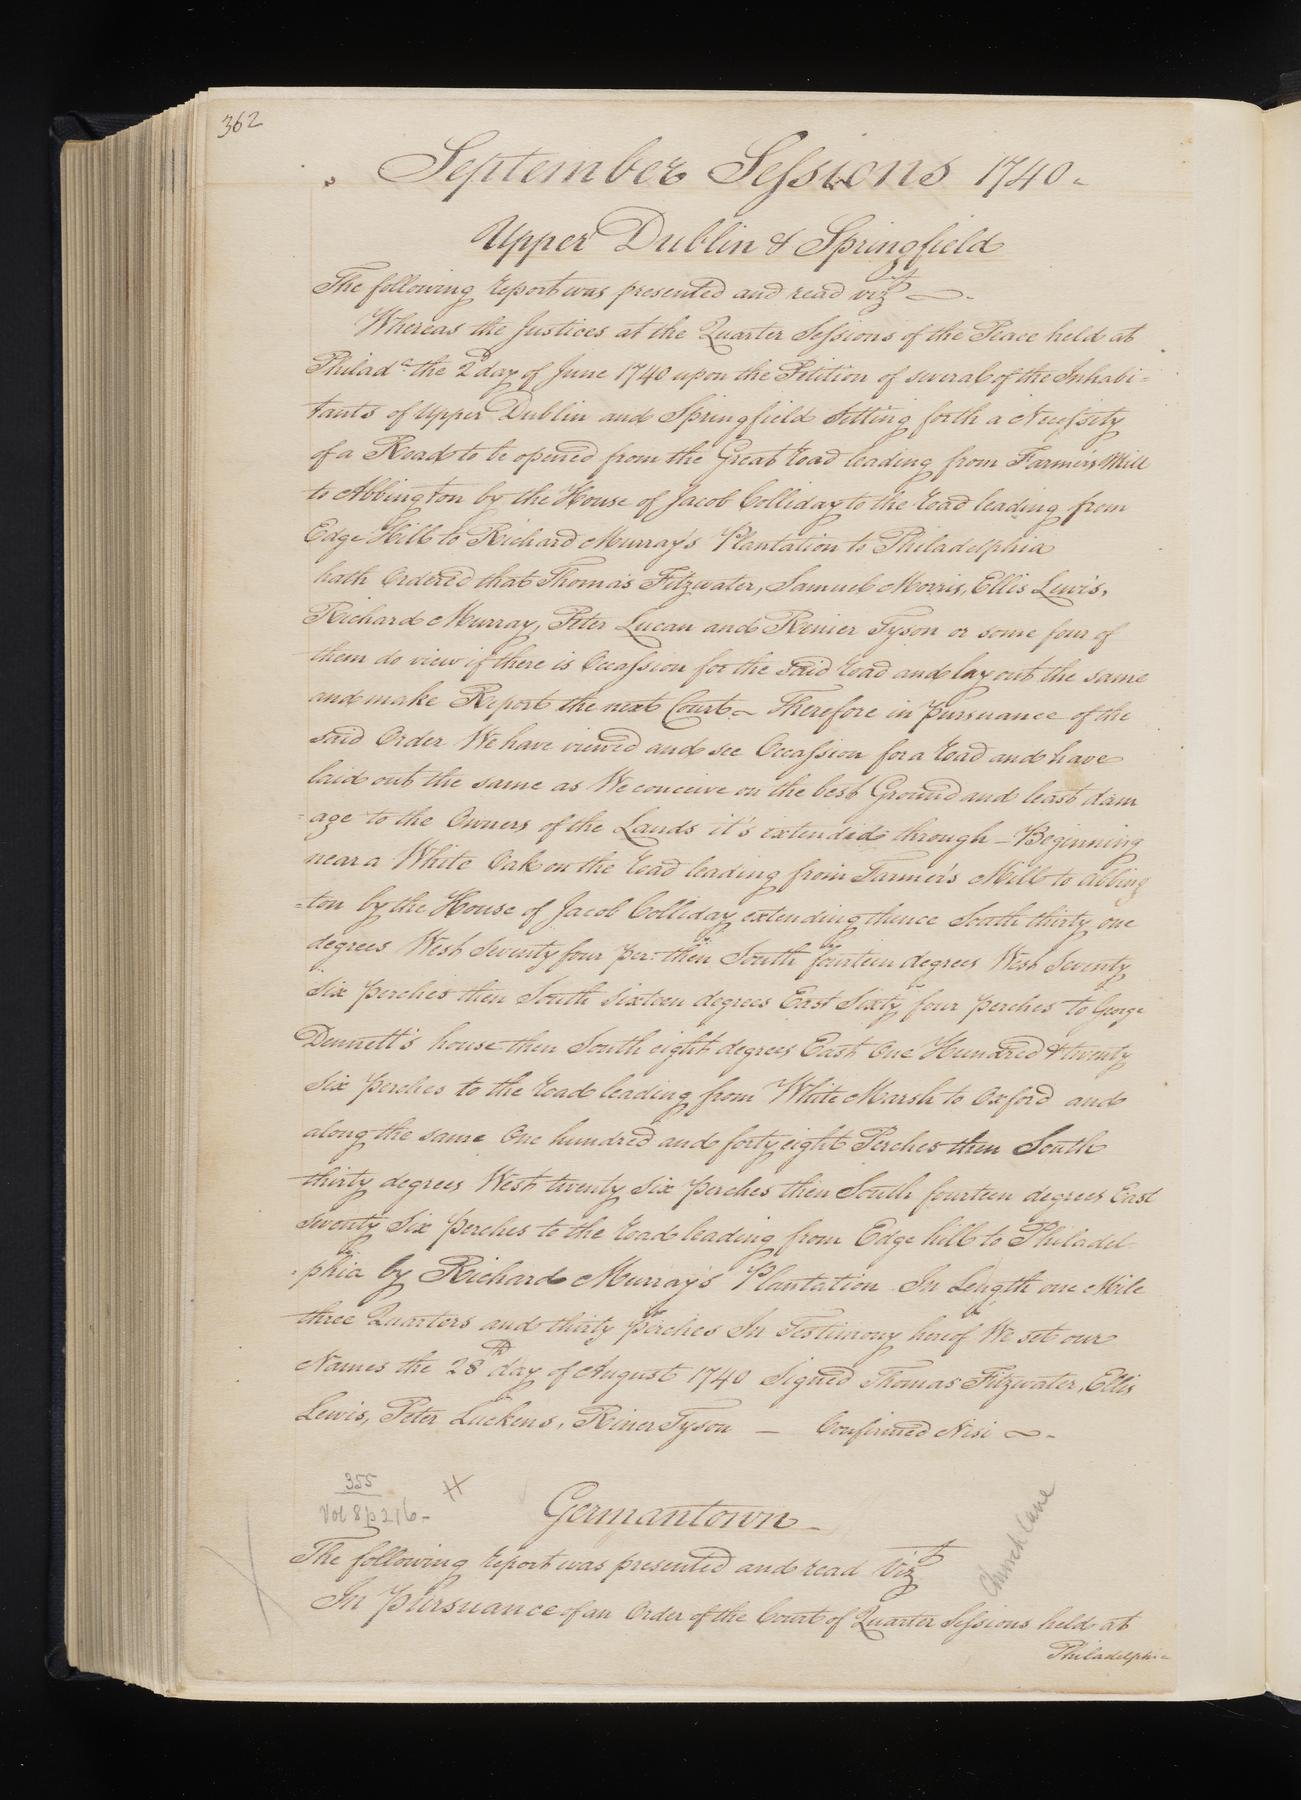 362
September Sessions 1740.
Upper Dublin & Springfield
The following report was presented and read vizt
Whereas the Justices at the Quarter Sessions of the Peace held at
Philada the 2d day of June 1740 upon the Petition of several of the Inhabi=
tants of Upper Dublin and Springfield Setting forth a Necessity
of a Road to be opened from the Great road leading from Farmer's Mill
to Abbington by the House of Jacob Colliday to the road leading from
Edge Hill to Richard Murray's Plantation to Philadelphia
hath Ordered that Thomas Fitzwater, Samuel Morris, Ellis Lewis,
Richard Murray, Peter Lucan and Rinier Tyson or some four of
them do view if there is Occassion for the said road and lay out the same
and make Report the next Court – Therefore in pursuance of the
said Order We have viewed and see Occassion for a road and have
laid out the same as We conceive on the best Ground and least dam
=age to the Owners of the Lands it's extended through – Beginning
near a White Oak on the road leading from Farmer's Mill to Abbing
=ton by the House of Jacob Colliday extending thence South thirty one
degrees West Seventy four per: then South fourteen degrees West Seventy
Six perches then South sixteen degrees East Sixty four perches to George
Dennett's house then South eight degrees East One Hundred & twenty
Six perches to the road leading from White Marsh to Oxford and
along the same One hundred and forty eight Perches then South
thirty degrees West twenty Six perches then South fourteen degrees East
Seventy Six perches to the road leading from Edge hill to Philadel-
phia by Richard Murray's Plantation In Length one Mile
three Quarters and thirty perches In Testimony hereof We set our
Names the 28th day of August 1740 Signed Thomas Fitzwater, Ellis
Lewis, Peter Luckens, Riner Tyson — Confirmed Nisi
355
Vol 8 p 216-
Germantown
Church Lane
The following report was presented and read Vizt
In pursuance of an Order of the Court of Quarter Sessions held at
Philadelphia